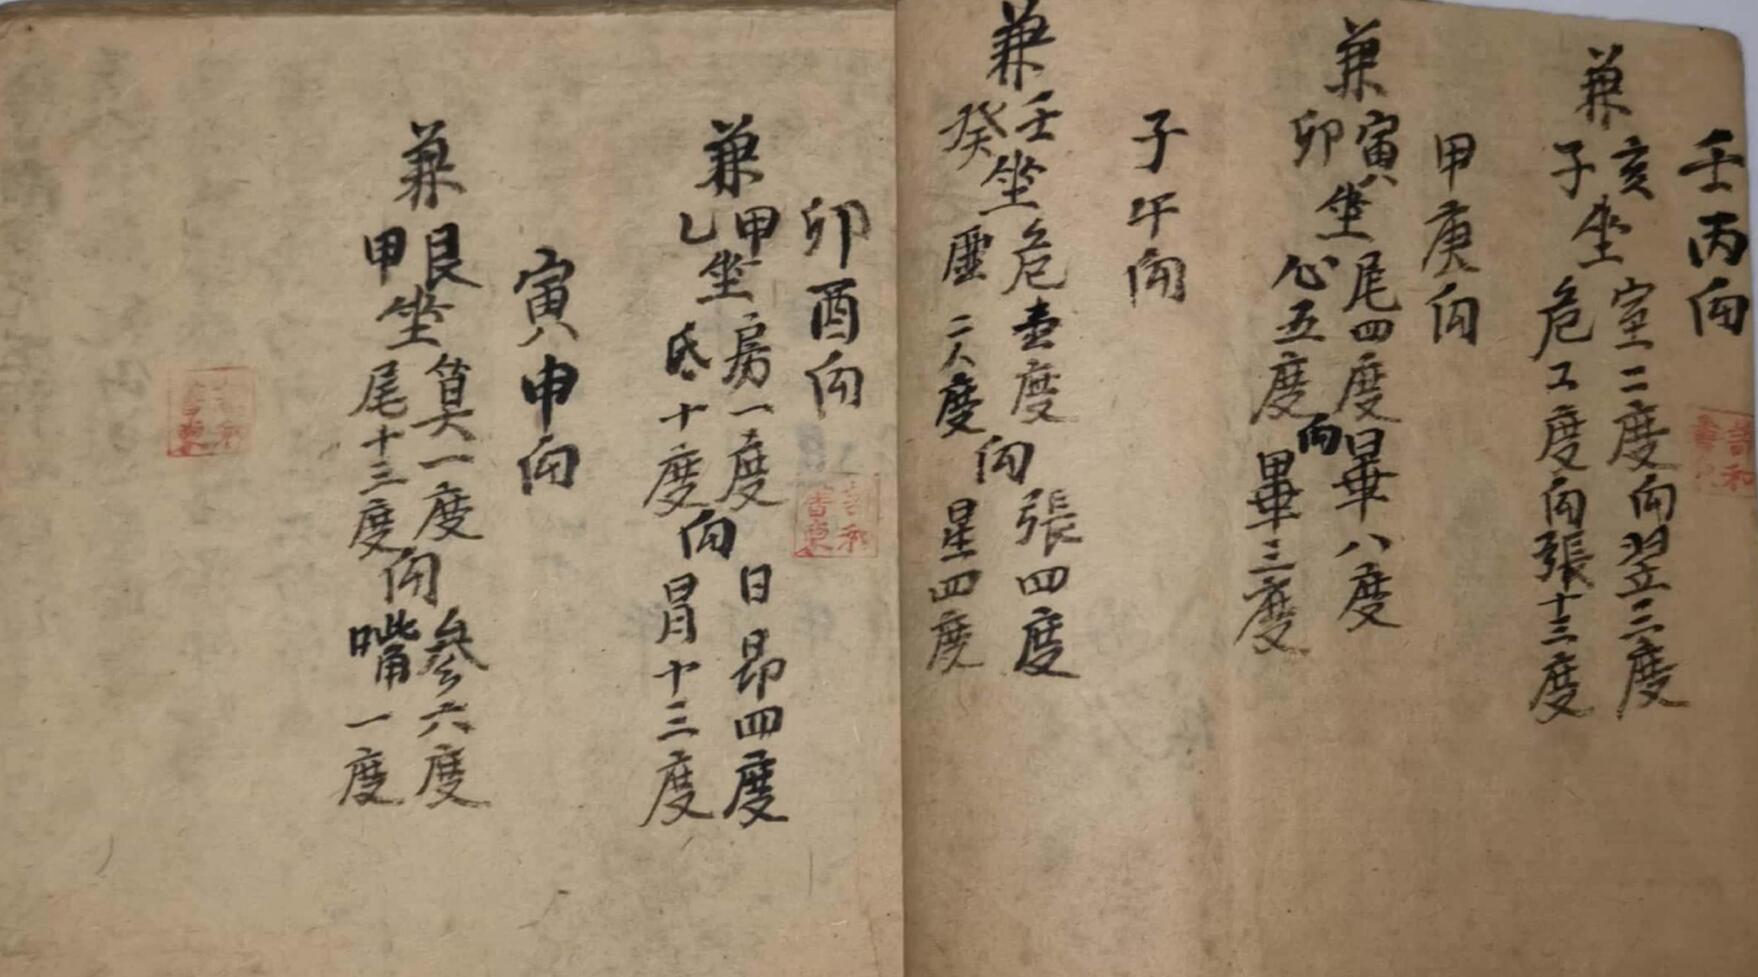 壬丙向
兼
亥
子
坐
室二度向翌三度
危工度向張十三度
甲庚向
兼
寅
卯
坐
尾四度
心五度
向
畢八度
畢三度
子午向
兼
壬
癸
坐
危壹度
二八度
向
張四度
星四度
卯酉向
兼
甲
乚
坐
房一度
氐十度
向
日昴四度
胃十三度
寅申向
兼
艮
甲
坐
箕一度
尾十三度
向
參六度
嘴一度